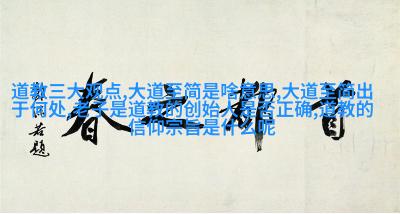 道教三大观点,大道至简是啥意思,大道至简出
于何处,老子是道教的创始人是否正确,道教的
信仰宗旨是什么呢
首都是春
沫若题